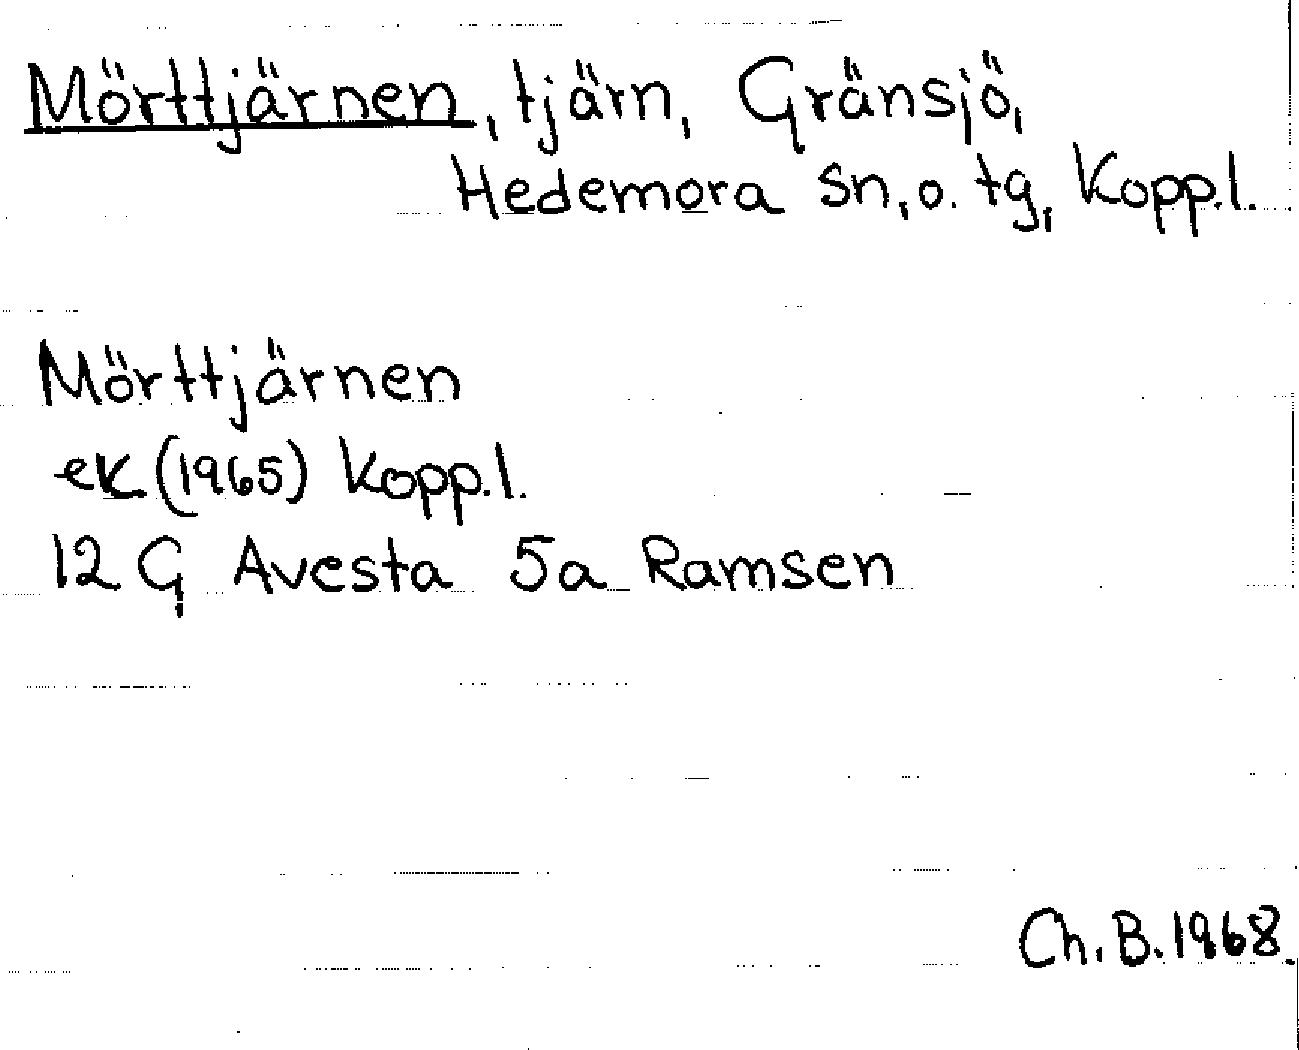 Mörttjärnen, tjärn, Gränsjö,
Hedemora sn, o. tg, Kopp.l.
Mörttjärnen
ek (1965) Kopp.l.
12 G Avesta 5a Ramsen
Ch. B. 1968.